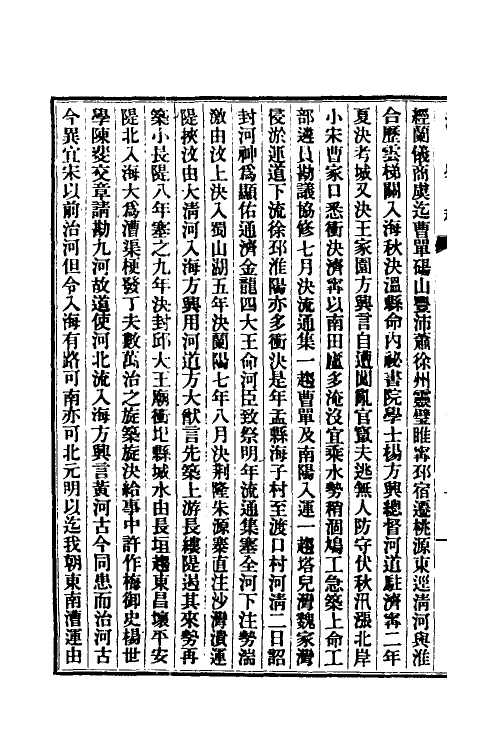 經蘭儀商虞迄曹單碭山豐沛蕭徐州靈璧睢甯邳宿遷桃源東逕淸河與淮
合歷雲梯關入海秋決溫縣命內祕書院學士楊方興總督河道駐濟甯二年
夏決考城又決王家園方興言自遭闖亂官竄夫逃無人防守伏秋汛漲北岸
小宋曹家口悉衝決濟甯以南田廬多淹沒宜乘水勢稍涸鳩工急築上命工
部遴員勘議協修七月決流通集一趨曹單及南陽入運一趨塔兒灣魏家灣
侵淤運道下流徐邳淮陽亦多衝決是年孟縣海子村至渡口村河淸二日詔
封河神爲顯佑通濟金龍四大王命河臣致祭明年流通集塞全河下注勢湍
激由汶上決入蜀山湖五年決蘭陽七年八月決荆隆朱源寨直注沙灣潰運
隄挾汶由大淸河入海方興用河道方大猷言先築上游長縷隄遏其來勢再
築小長隄八年塞之九年決封邱大王廟衝圮縣城水由長垣趨東昌壞平安
隄北入海大爲漕渠梗發丁夫數萬治之旋築旋決給事中許作梅御史楊世
學陳斐交章請勘九河故道使河北流入海方興言黃河古今同患而治河古
今異宜宋以前治河但令入海有路可南亦可北元明以迄我朝東南漕運由